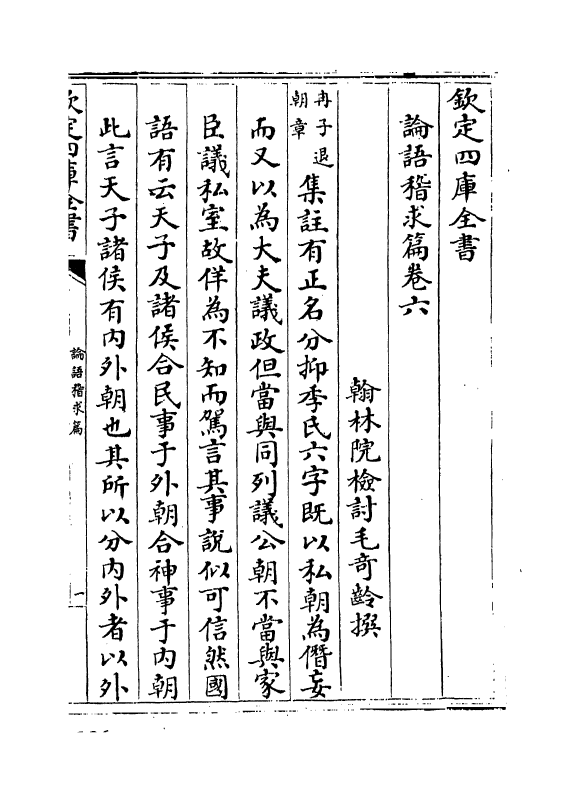 欽定四庫全書
論語稽求篇卷六
翰林院檢討毛奇齡撰
冉子退
朝章
集註有正名分抑季氏六字既以私朝為僭妄
而又以為大夫議政但當與同列議公朝不當與家
臣議私室故佯為不知而駕言其事說似可信然國
語有云天子及諸侯合民事于外朝合神事于内朝
此言天子諸侯有内外朝也其所以分内外者以外
欽定四庫全書
論語稽求篇
一